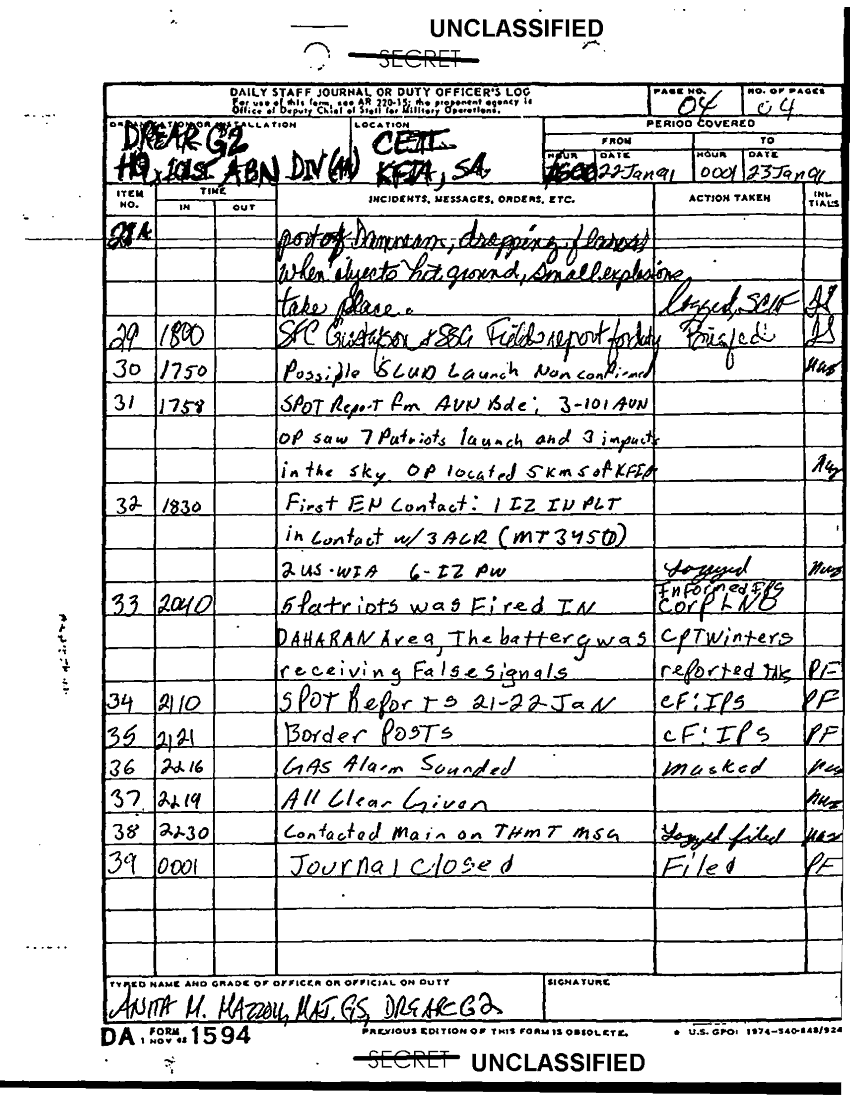 UNCLASSIFIED
SECRET
DAILY STAFF JOURNAL OR DUTY OFFICER'S LOG
For use of this form, see AR 220-15; the proponent agency is
Office of Deputy Chief of Staff for Military Operations.
PAGE NO.
04
NO. OF PAGES
04
ORGANIZATION OR INSTALLATION
DREAR G2
HQ, 101st ABN DIV (AA)
LOCATION
KFIA, SA
PERIOD COVERED
FROM
TO
HOUR
DATE
22 Jan 91
HOUR
0001
DATE
23 Jan 91
ITEM NO.
TIME
IN
OUT
INCIDENTS, MESSAGES, ORDERS, ETC.
ACTION TAKEN
INITIALS
port of Dammam, dropping flares
when objects hit ground, small explosions
take place. logged, SCIF
29 1800 SFC Gustafson & SSG Fields report for duty Briefed
30 1750 Possible SCUD Launch Nonconfirmed
31 1758 SPOT Report fm AVN Bde; 3-101 AVN
OP saw 7 Patriots launch and 3 impacts
in the sky OP located 5 km S of KFIA
32 1830 First EN Contact: 1 IZ IN PLT
in contact w/ 3 ACR (MT3450)
2 US-WIA 6-IZ PW Logged
33 2040 5 Patriots was Fired IN Informed IPS Corp LNO
DAHARAN Area, The battery was CPT Winters
receiving False signals reported this PF
34 2110 SPOT Reports 21-22 JaN CF: IPS PF
35 2121 Border PosTs CF: IPS PF
36 2216 GAS Alarm Sounded masked
37 2219 All Clear Given
38 2230 Contacted Main on THMT MSG Logged filed
39 0001 Journal Closed Filed PF
TYPED NAME AND GRADE OF OFFICER OR OFFICIAL ON DUTY
ANITA M. , MAJ, GS, DREAR G2
SIGNATURE
DA FORM 1 NOV 62 1594
PREVIOUS EDITION OF THIS FORM IS OBSOLETE.
U.S. GPO: 1974-540-848/924
SECRET UNCLASSIFIED